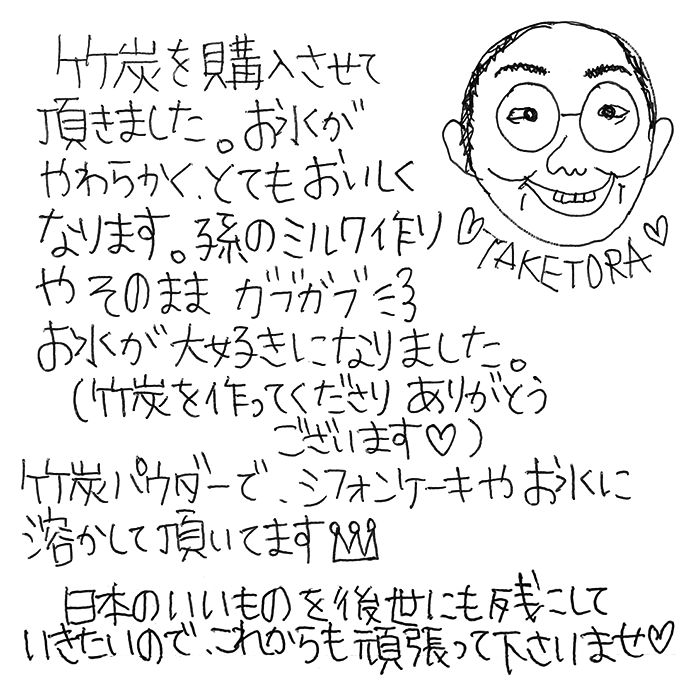 竹炭を購入させて
頂きました。お水が
やわらかく、とてもおいしく
なります。孫のミルク作り
やそのまま ガブガブ
お水が大好きになりました。
(竹炭を作ってくださり ありがとう
ございます♡)
竹炭パウダーで、シフォンケーキやお水に
溶かして頂いてます
日本のいいものを後世にも残こして
いきたいので、これからも頑張って下さいませ♡
♡TAKETORA♡